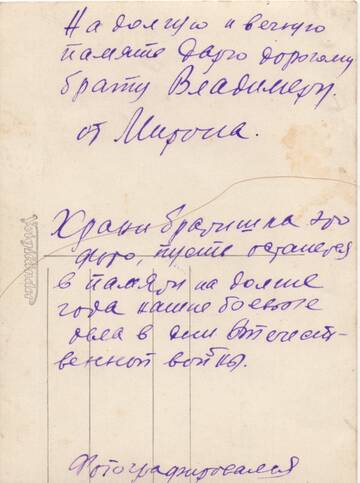 На долгую и вечную
память Дарю дорогому
брату Владимеру.
от Мирона.
Храни братишка это
фото, пусть останется
в памяти на долгие
года наше боевые
дела в дни Отечест-
венной войны.
Фотографировался